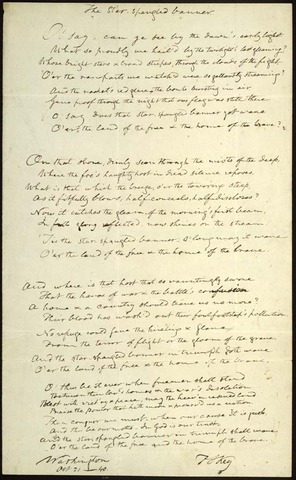 The Star-spangled banner
O! say, can ye see by the dawn's early light
What so proudly we hail'd by the twilight's last gleaming?
Whose bright stars & broad stripes, through the clouds of the fight,
O'er the ramparts we watch'd were so gallantly streaming?
And the rocket's red glare, the bomb bursting in air
Gave proof through the night that our flag was still there
O! say, does that star-spangled banner yet wave
O'er the land of the free & the home of the brave?
On that shore, dimly seen through the mists of the deep,
Where the foe's haughty host in dread silence reposes
What is that which the breeze, o'er the towering steep,
As it fitfully blows, half conceals, half discloses?
Now it catches the gleam of the morning's first beam,
In full glory reflected now shines on the stream
'Tis the star-spangled banner, O! long may it wave
O'er the land of the free & the home of the brave
And where is that host that so vauntingly swore
That the havoc of war & the battle's confusion
A home & a Country should leave us no more?
Their blood has wash'd out their foul footstep's pollution
No refuge could save the hireling & slave
From the terror of flight or the gloom of the grave
And the star-spangled banner in triumph doth wave
O'er the land of the free & the home of the brave.
O! thus be it ever when freemen shall stand
Between their lov'd homes & the war's desolation
Blest with vict'ry & peace, may the heav'n rescued land
Praise the power that hath made & preserv'd us a nation
Then conquer we must, when our cause it is just
And this be our motto, In God is our trust
And the star-spangled banner in triumph shall wave
O'er the land of the free and the home of the brave.
Washington
Oct 21 - 40
F S Key